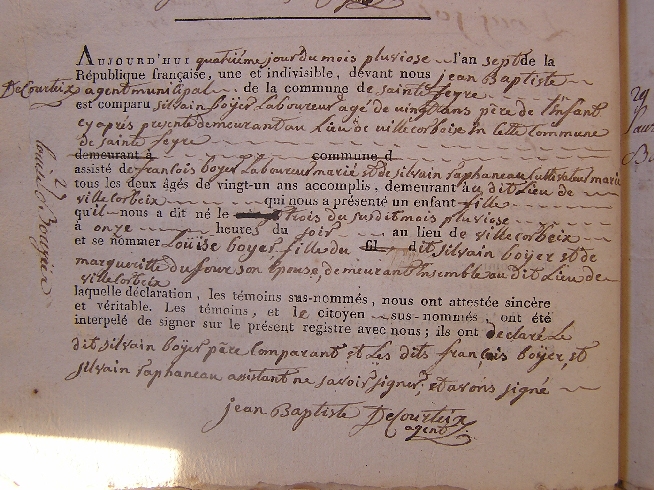 AUJOURD'HUI quatriéme jour du mois pluviose l'an sept de la
République française, une et indivisible, devant nous jean Baptiste
DeCourteix agent municipal de la commune de sainte feyre
est comparu silvain boÿer Laboureur agé de vingt ans père de l'Enfant
cy aprés présenté demeurant au Lieu de villecorbeix En Cette commune
de sainte feyre
demeurant à commune d
assisté de françois boyer Laboureur marié et de silvain raphaneau Cultivateur marié
tous les deux âgés de vingt-un ans accomplis, demeurant au dit Lieu de
villecorbeix qui nous a présenté un enfant fille
qu'il nous a dit né le trois du susdit mois pluviose
à onze heures du soir au lieu de villecorbeix
et se nommer Loüise boyer fille du fil dit silvain boÿer et de
margueritte Dufour son Epouse, demeurant Ensemble au dit Lieu de
villecorbeix
laquelle déclaration, les témoins sus-nommés, nous ont attestée sincère
et véritable. Les témoins, et le citoyen sus-nommés, ont été
interpelé de signer sur le présent registre avec nous; ils ont declaré Le
dit silvain boÿer père comparant et Les dits françois boÿer, et
silvain raphaneau assistant ne savoir signer, et avons signé
jean Baptiste DeCourteix
agent
27
29